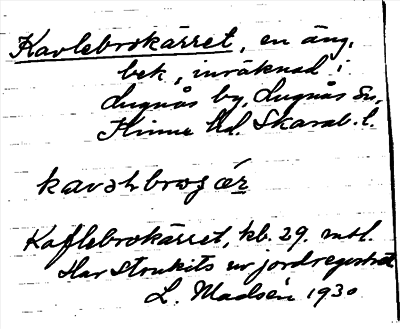 Kavlebrokärret, en äng,
bek, inräknad i
Lugnås by, Lugnås sn,
Kinne hd. Skarab. l.
kavəlbros ćr
Kaflebrokärret, kb. 29. mtl.
Har strukits ur jordregistret
L. Madsén 1930